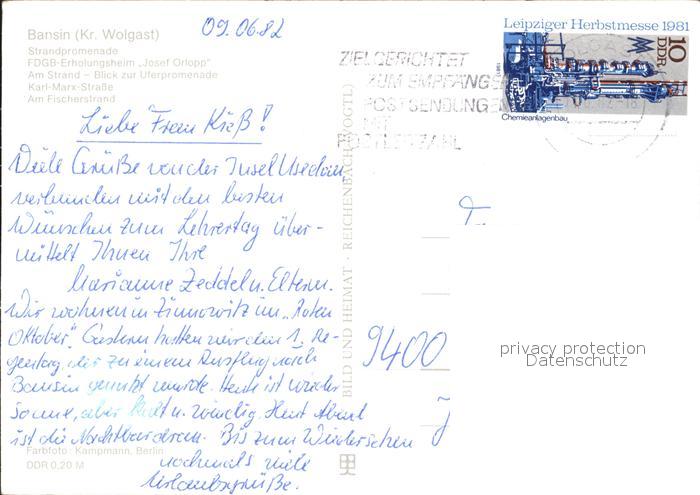 Bansin (Kr. Wolgast)
Strandpromenade
FDGB-Erholungsheim „Josef Orlopp"
Am Strand – Blick zur Uferpromenade
Karl-Marx-Straße
Am Fischerstrand
09.06.82
Leipziger Herbstmesse 1981
10
DDR
1981
Chemieanlagenbau
ZIELGERICHTET
ZUM EMPFÄNGER
POSTSENDUNGEN
MIT
POSTLEITZAHL
Liebe Frau Kieß!
Viele Grüße von der Insel Usedom
verbunden mit den besten
Wünschen zum Lehrertag über-
mittelt Ihnen Ihre
Marianne Zeddel u. Eltern.
Wir wohnen in Zinnowitz im „Roten
Oktober". Gestern hatten wir den 1. Re-
gentag, der zu einem Ausflug nach
Bansin genutzt wurde. Heute ist wieder
Sonne, aber kalt u. windig. Heut Abend
ist die Nachtbar dran. Bis zum Wiedersehen
nochmals viele
Urlaubsgrüße.
Farbfoto: Kampmann, Berlin
DDR 0,20 M
BILD UND HEIMAT · REICHENBACH (VOGTL)
9400
privacy protection
Datenschutz